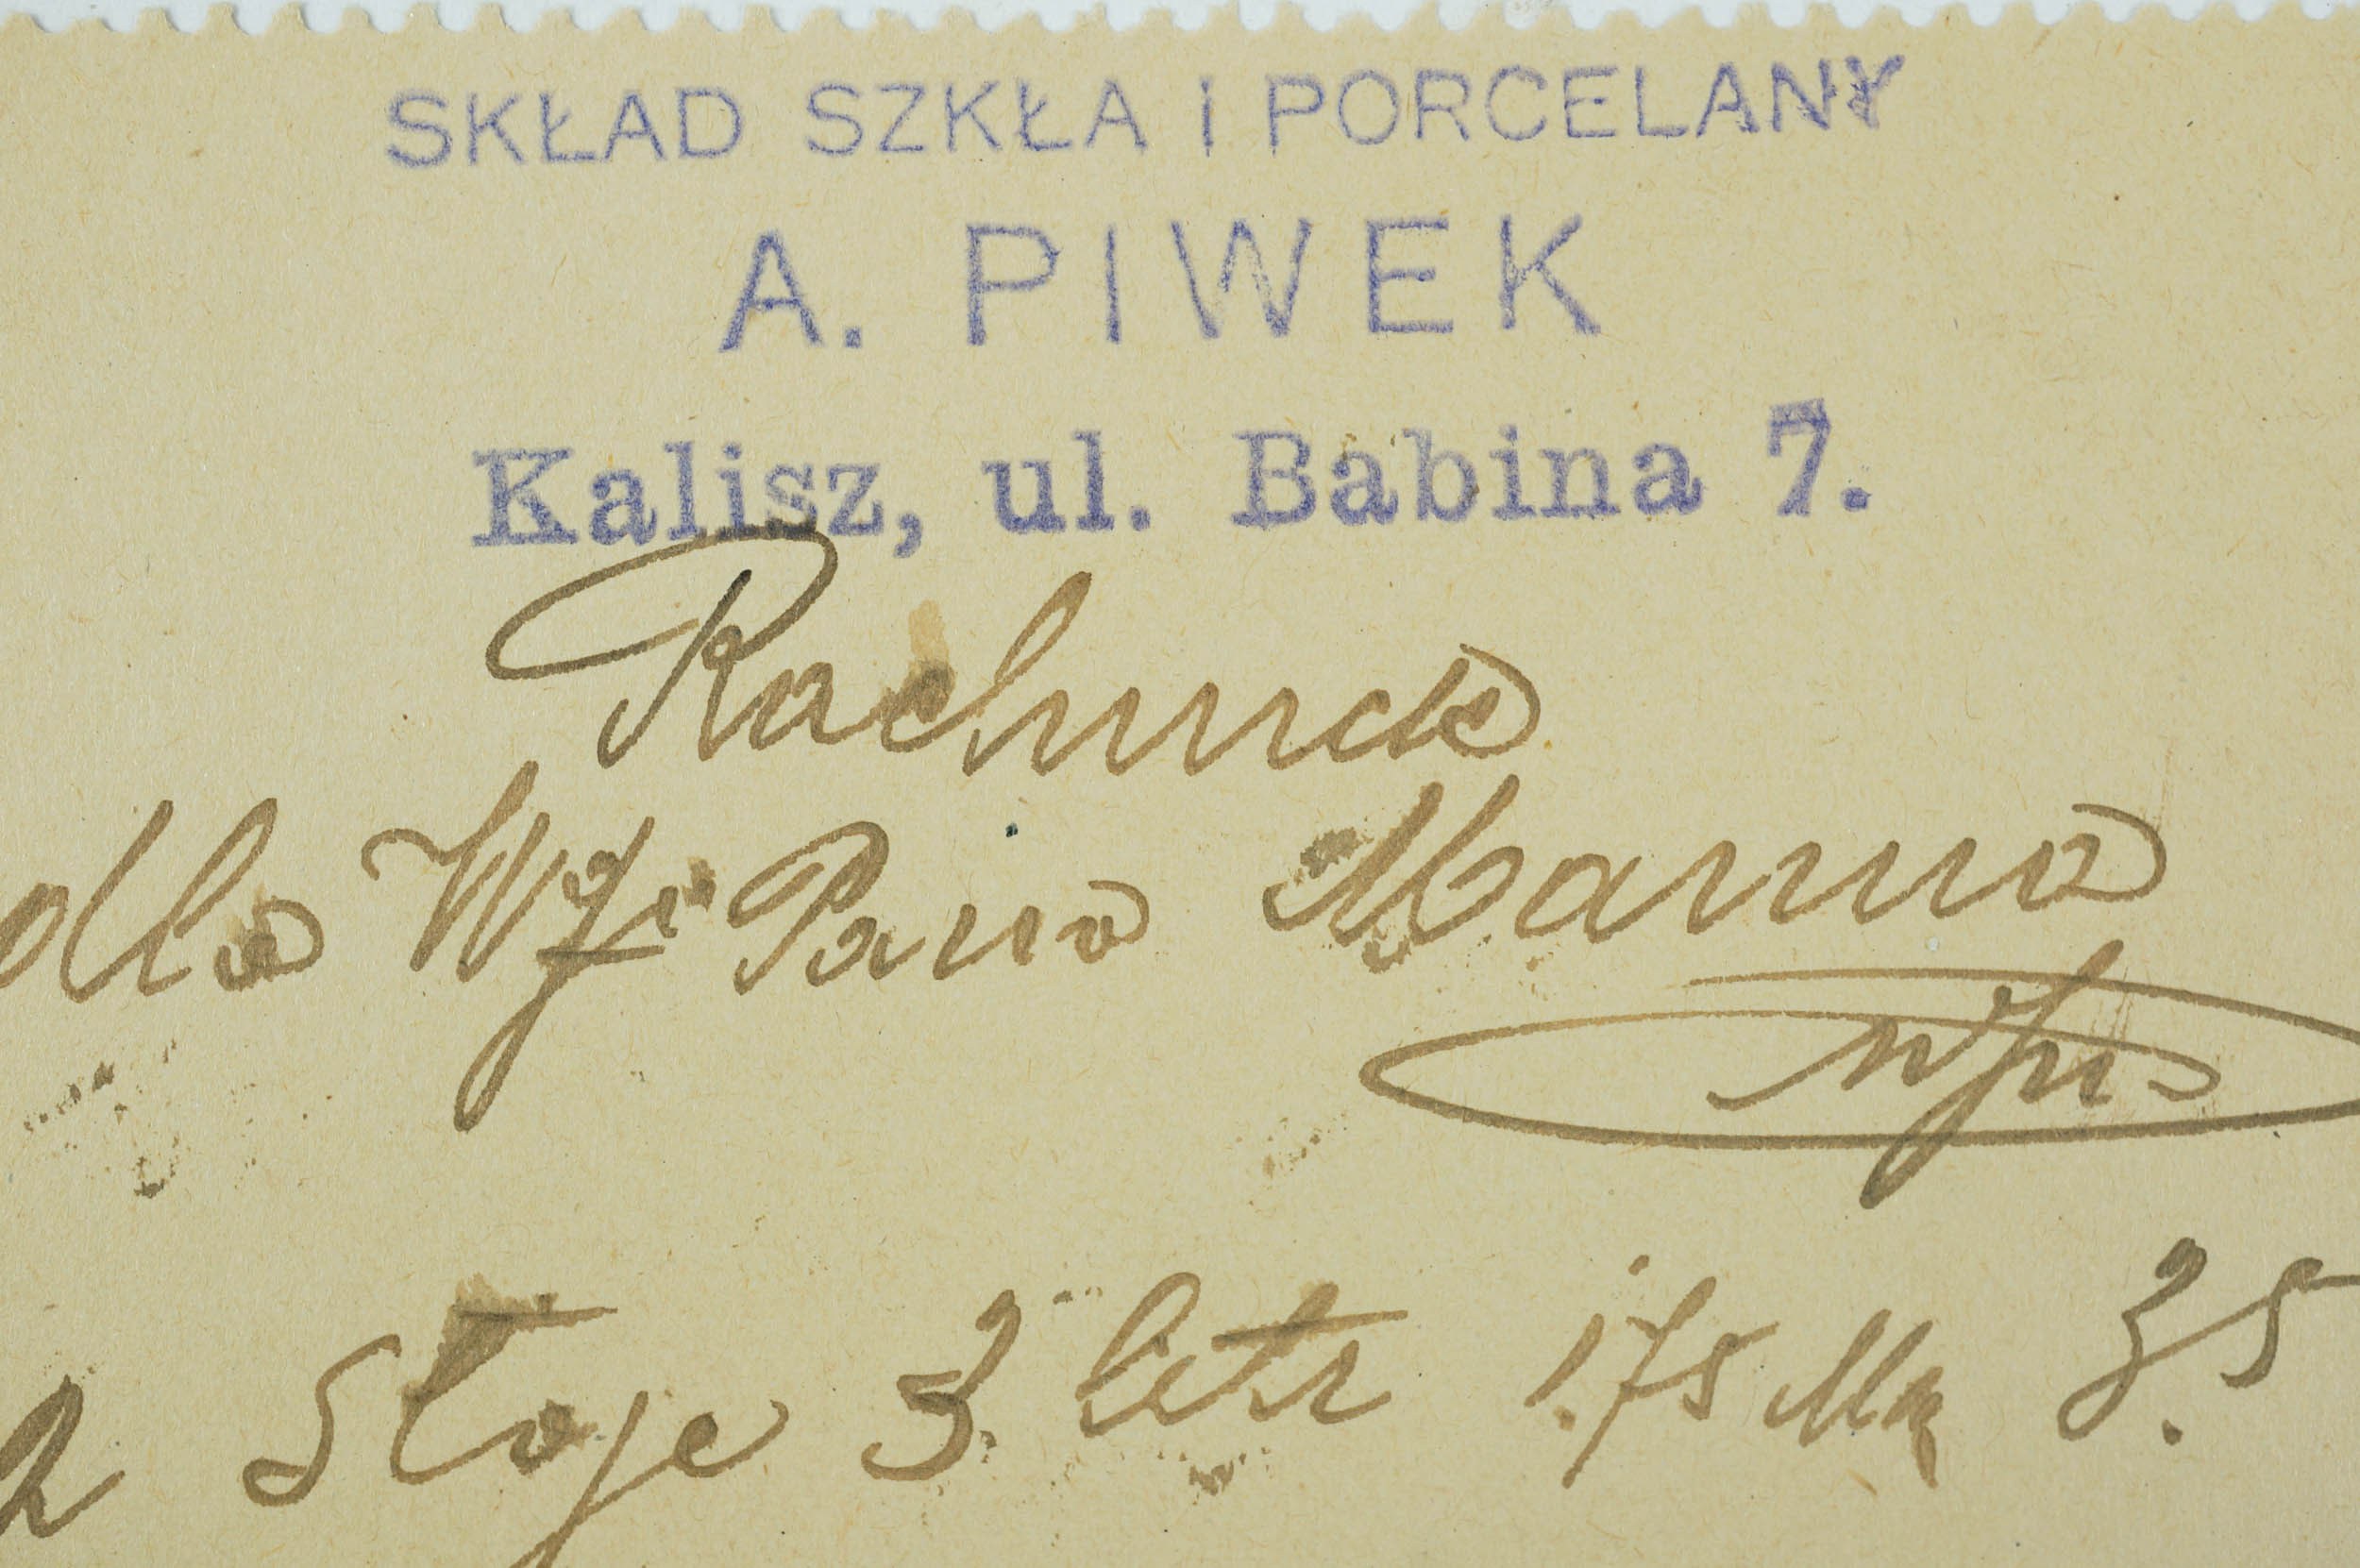 SKŁAD SZKŁA I PORCELANY
A. PIWEK
Kalisz, ul. Babina 7.
Rachunek
dla Pana Manna
2 Słoje 3 litr 1.75 Mk 3.5